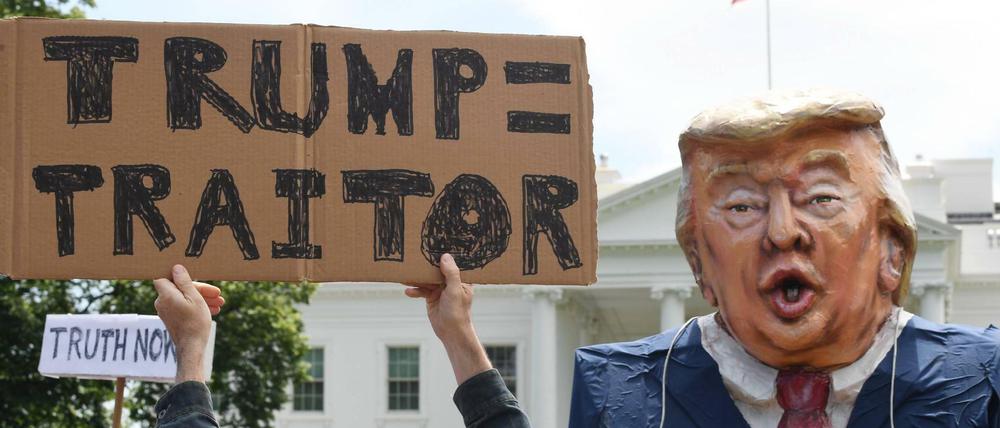 TRUMP =
TRAITOR
TRUTH NOW